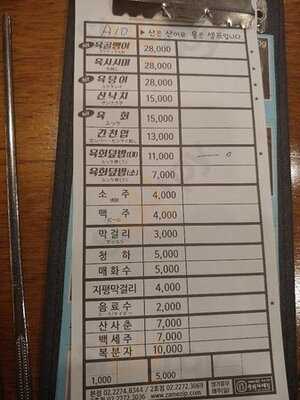 A10 ▶ 신문 산이슈 물은 셀프입니다
육꿈탱이 28,000
육사시미 28,000
육탕이 28,000
산낙지 15,000
육 회 15,000
간천엽 13,000
육회덮밥(대) 11,000
육회덮밥(소) 7,000
소 주 4,000
맥 주 4,000
막걸리 3,000
청 하 5,000
매화수 5,000
지평막걸리 4,000
음료수 2,000
산사춘 7,000
백세주 7,000
복분자 10,000
1,000 5,000
본점 02.2274.8344 / 2호점 02.2272.3069
www.zamezip.com / 3호점 02.2275.3036